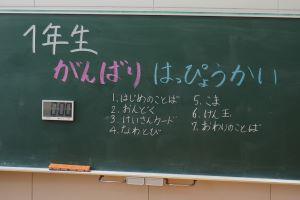 1年生
がんばり はっぴょうかい
0:00
1.はじめのことば
2.おんどく
3.けいさんカード
4.なわとび
5.こま
6.けん玉
7.おわりのことば